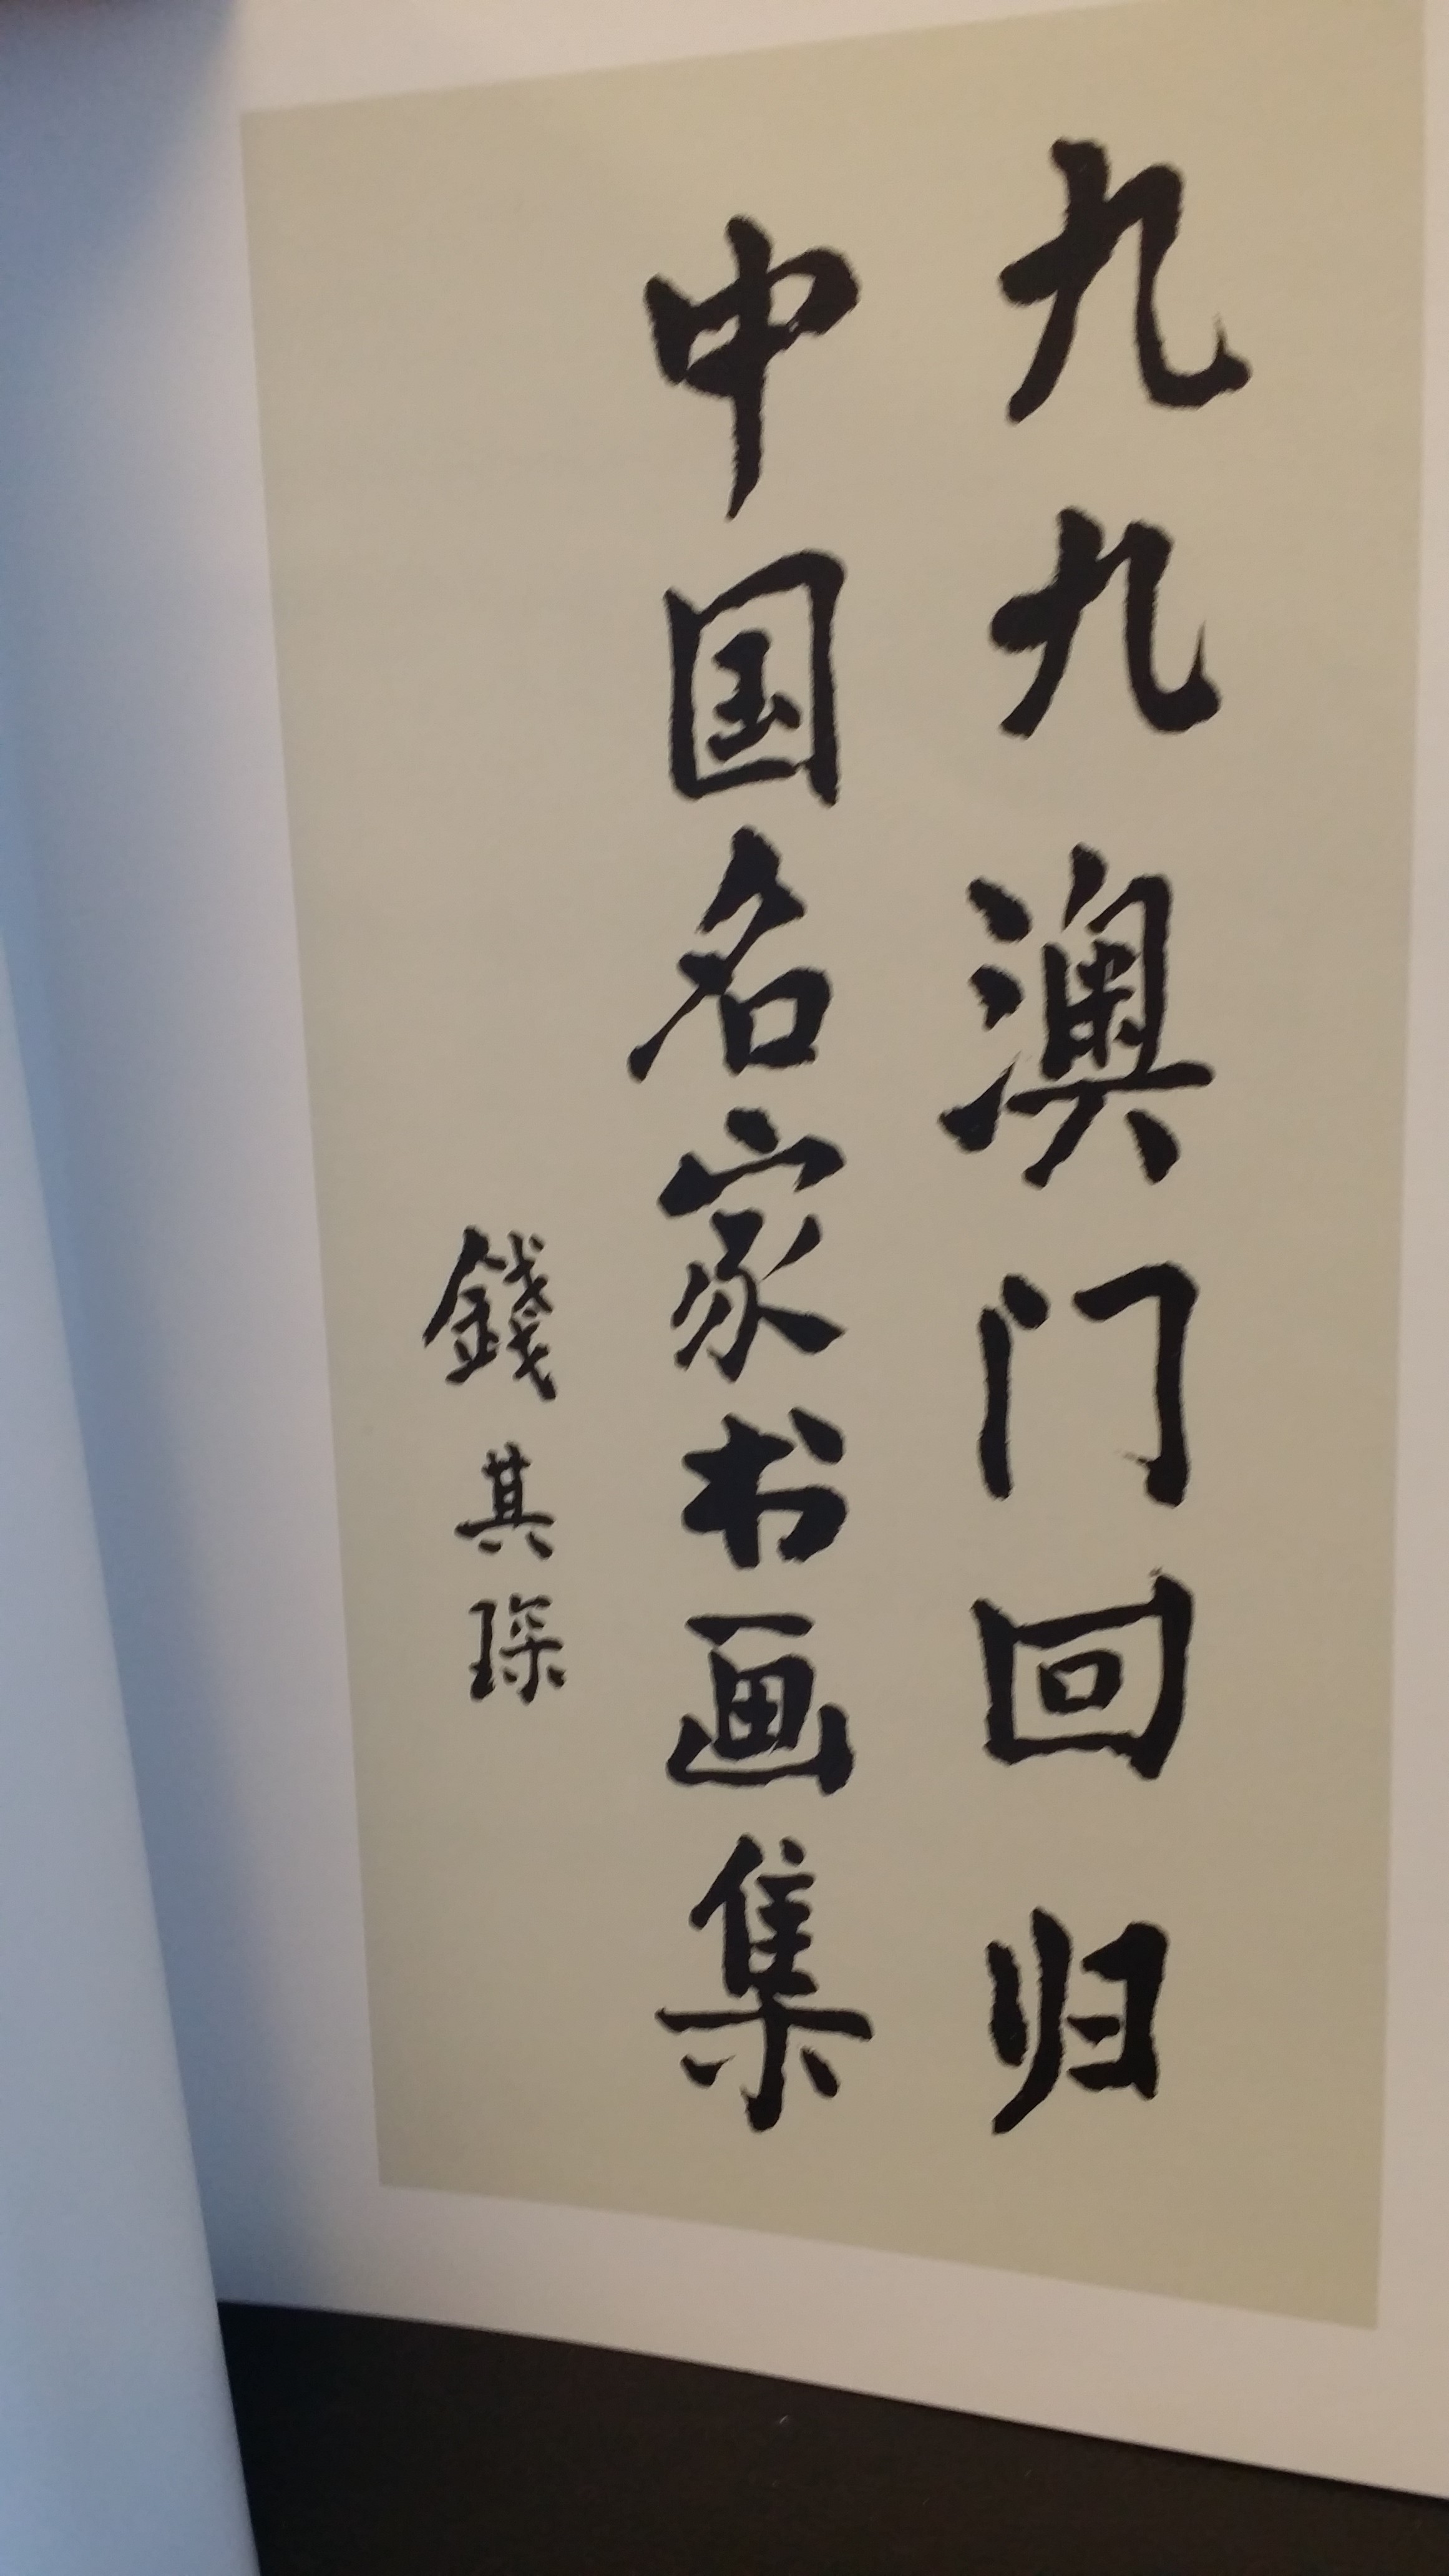 九九澳门回归
中国名家书画集
錢其琛